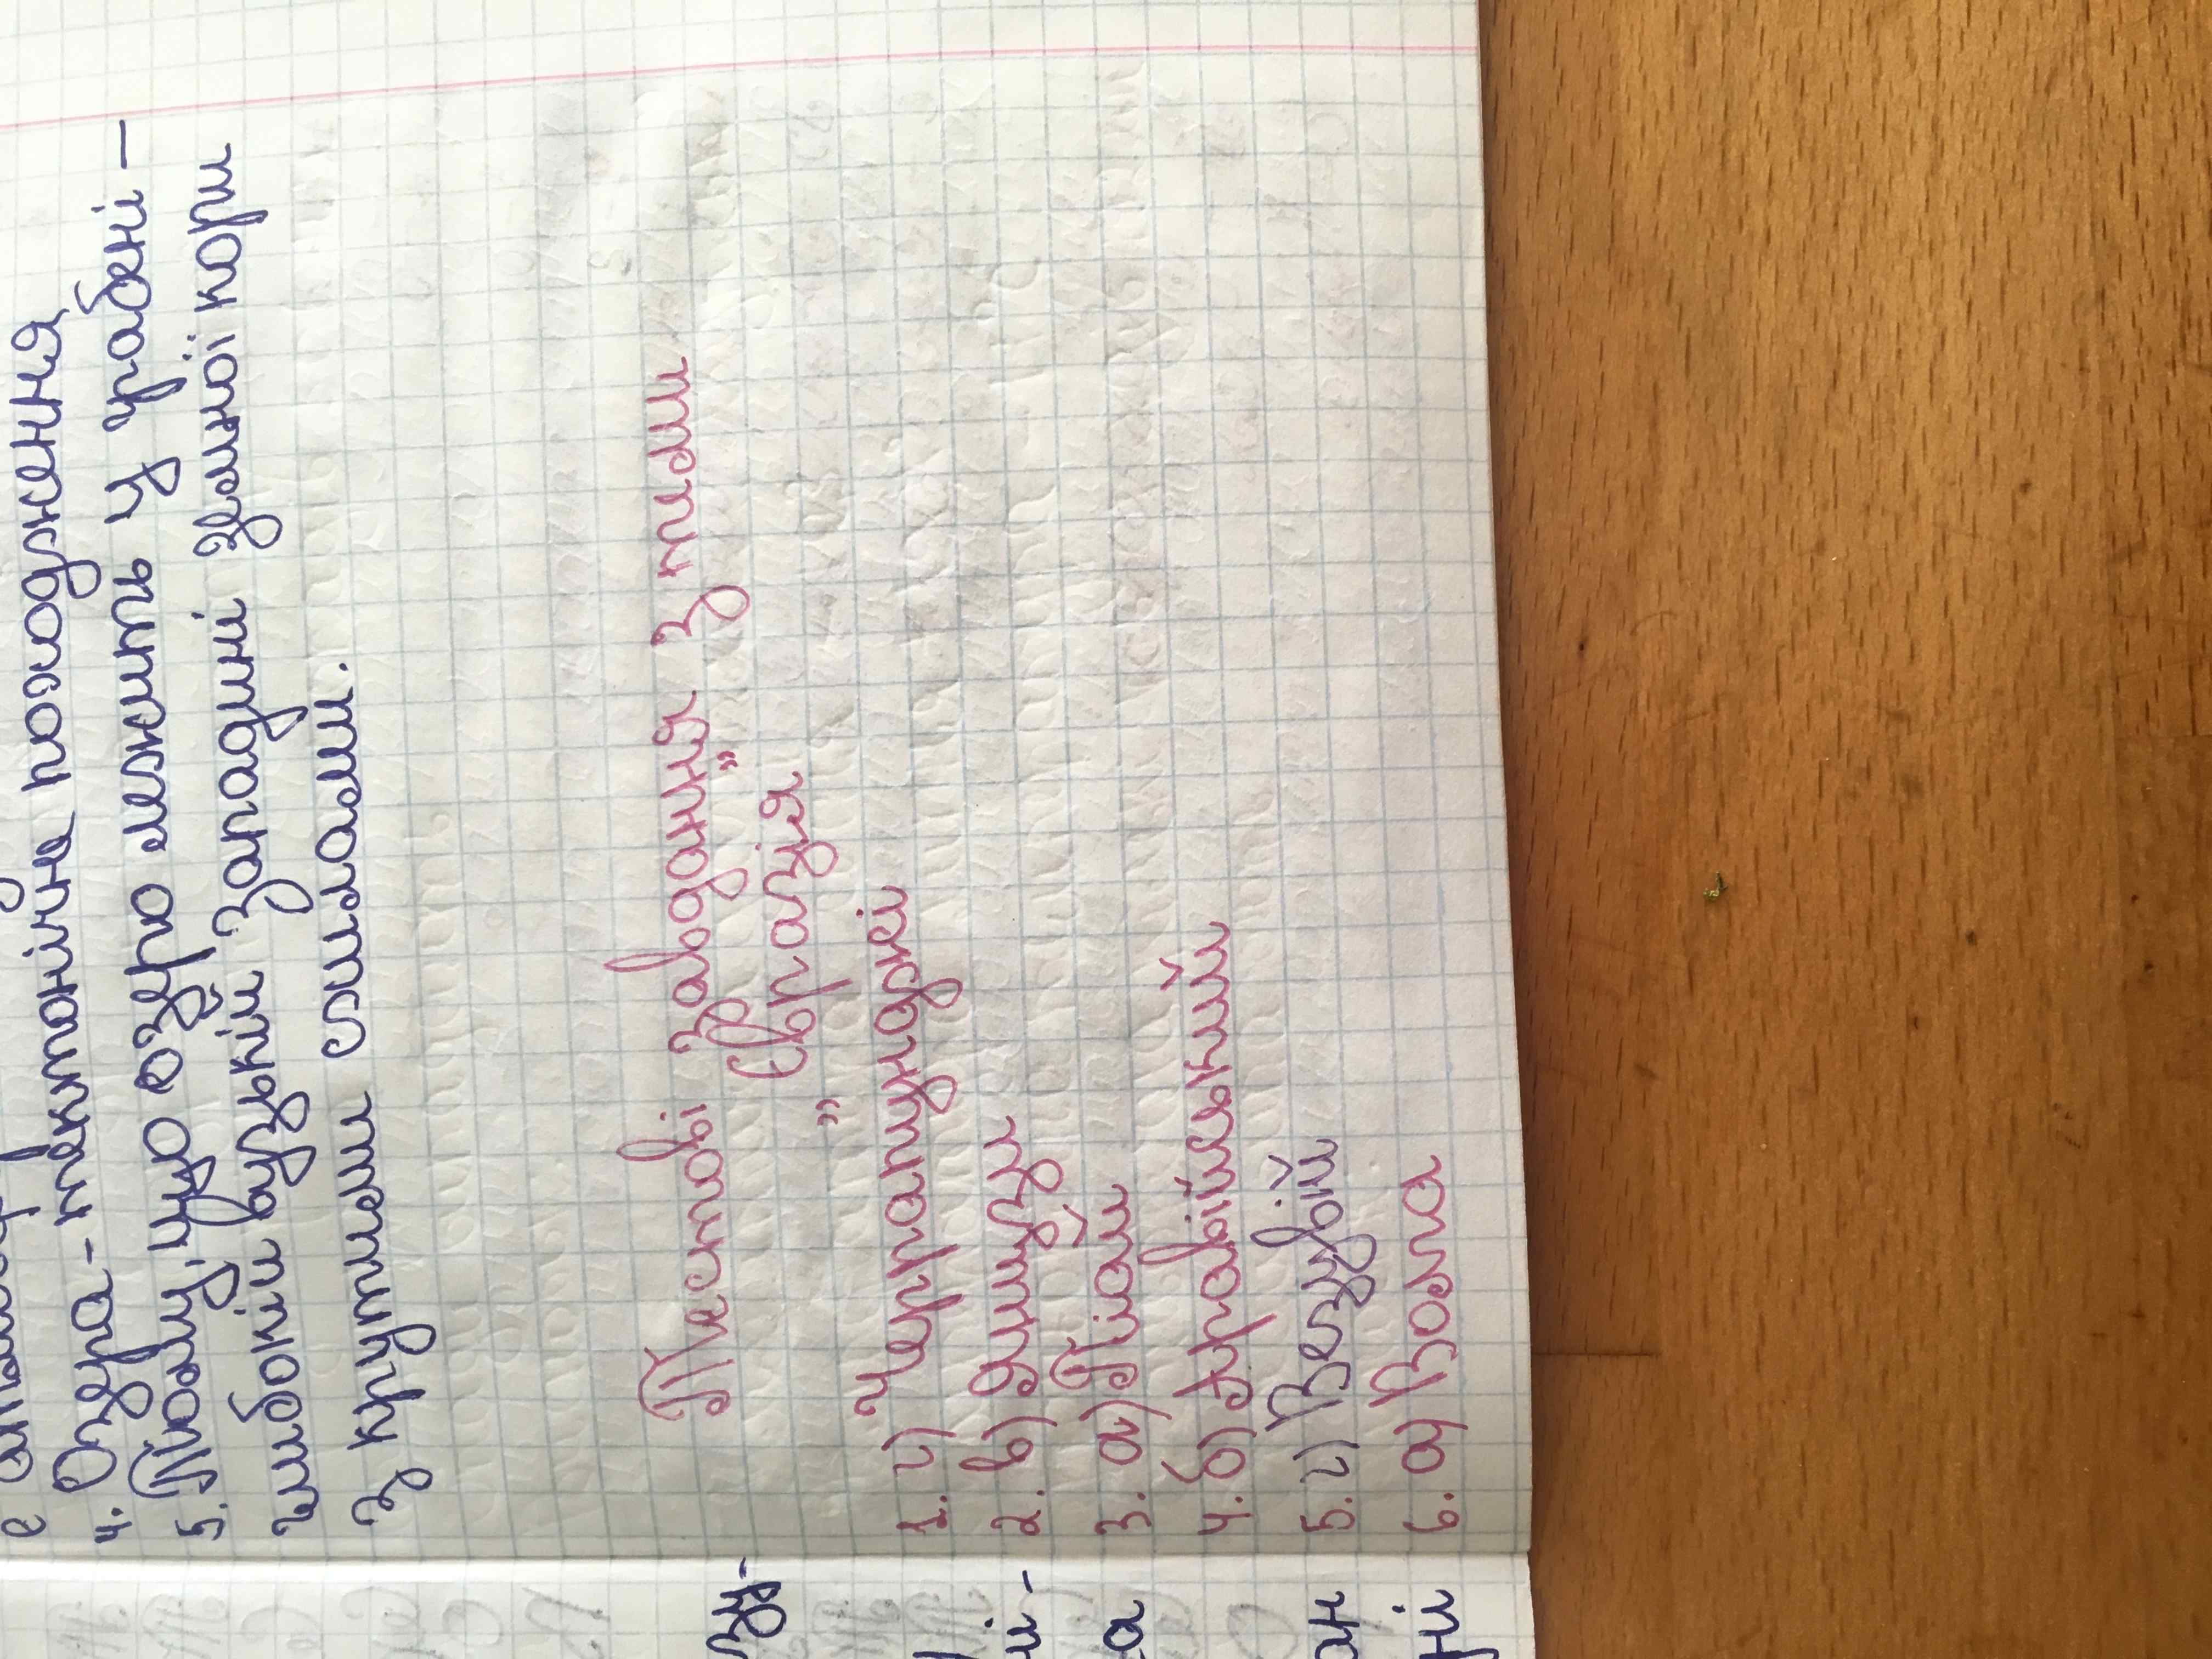 4. Озера - тектонічне походження
5. Тому, що озеро лежить у грабені -
глибокій вузькій западині земної кори
з крутими схилами.
Тестові завдання з теми
„Євразія”
1. г) Черрапунджі
2. в) Янцзи
3. а) Піам
4. б) Аравійський
5. г) Везувій
6. а) Волга
зу-
и-
а
ан
ні